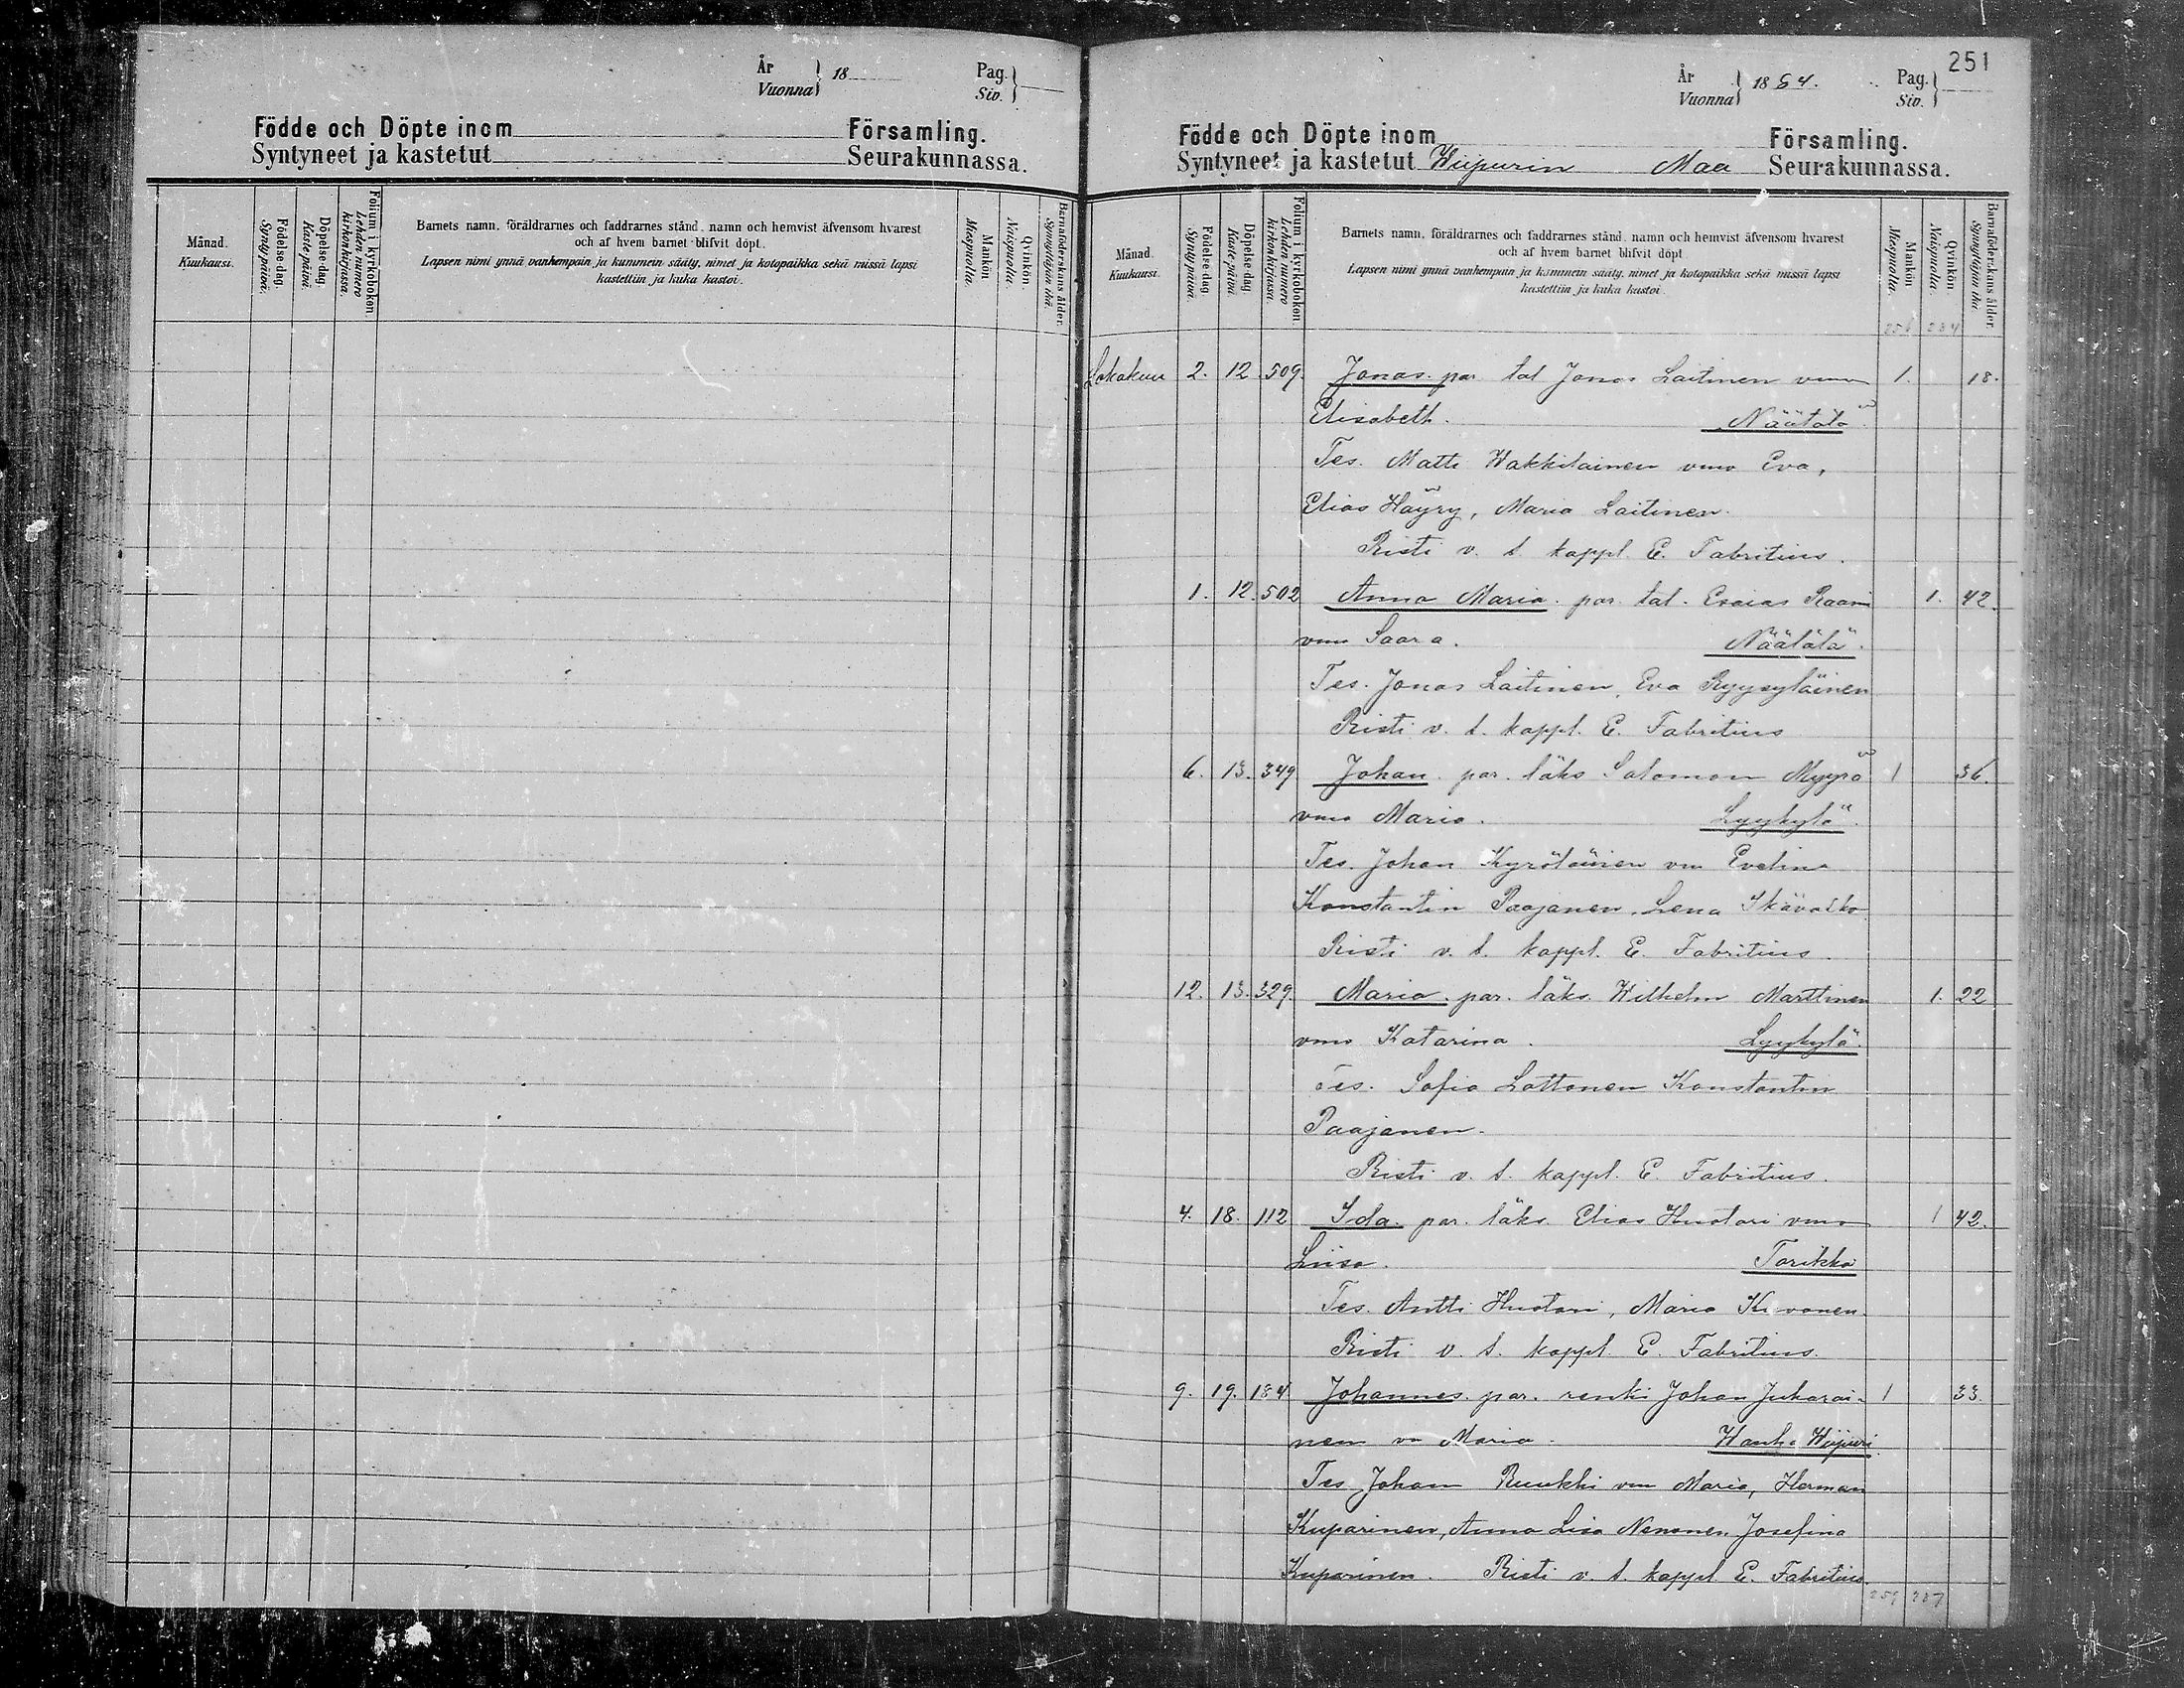 År
Vuonna } 18
Pag.
Siv. }
Födde och Döpte inom Församling.
Syntyneet ja kastetut Seurakunnassa.
Månad.
Kuukausi.
Födelse-dag.
Synty-päivä.
Döpelse-dag.
Kaste-päivä.
Folium i kyrkoboken
Lehden numero kirkonkirjassa.
Barnets namn, föräldrarnes och faddrarnes stånd, namn och hemvist äfvensom hvarest
och af hvem barnet blifvit döpt.
Lapsen nimi ynnä vanhempain ja kummein sääty, nimet ja kotopaikka sekä missä lapsi
kastettiin ja kuka kastoi.
Mankön.
Miespuolia.
Qvinkön.
Naispuolia.
Barnaföderskans ålder.
Synnyttäjän ikä.
251
År
Vuonna } 1864.
Pag.
Siv. }
Födde och Döpte inom Församling.
Syntyneet ja kastetut Wiipurin Maa Seurakunnassa.
Månad.
Kuukausi.
Födelse-dag.
Synty-päivä.
Döpelse-dag.
Kaste-päivä.
Folium i kyrkoboken.
Lehden numero kirkonkirjassa.
Barnets namn, föräldrarnes och faddrarnes stånd, namn och hemvist äfvensom hvarest
och af hvem barnet blifvit döpt.
Lapsen nimi ynnä vanhempain ja kummein sääty, nimet ja kotopaikka sekä missä lapsi
kastettiin ja kuka kastoi.
Mankön
Miespuolia.
Qvinkön.
Naispuolia.
Barnaföderskans ålder.
Synnyttäjän ikä
256 234
Lokakuu 2. 12 509. Jonas. par tal Jonas Laitinen vmo 1. 18.
Elisabeth. Näätälä
Tes. Matti Hakkilainen vmo Eva,
Elias Häyry, Maria Laitinen.
Risti v. t. kappl. E. Fabritius.
1. 12. 502 Anna Maria. par. tal. Esaias Raami 1. 42.
vmo Saara. Näätälä.
Tes. Jonas Laitinen, Eva Ryysyläinen
Risti v. t. kappl. E. Fabritius
6. 13. 349 Johan. par. läks Salomon Myyrä 1 36.
vmo Maria. Lyykylä.
Tes. Johan Kyröläinen vm Evelina
Konstantin Paajanen, Lena Skävalko
Risti v. t. kappl. E. Fabritius.
12. 13. 329. Maria. par. läks. Wilhelm Marttinen 1. 22
vmo Katarina. Lyykylä.
Tes. Sofia Lottonen Konstantin
Paajanen.
Risti v. t. kappl. E. Fabritius.
4. 18. 112 Ida. par. läks. Elias Huotari vmo 1 42.
Liisa. Tarikka
Tes. Antti Huotari, Maria Kivonen.
Risti v. t. kappl. E. Fabritius.
9. 19. 184 Johannes. par. renki Johan Jukarai- 1 33.
nen vm Maria. Wanha Wiipuri.
Tes Johan Ruukki vm Maria, Herman
Kuparinen, Anna Lisa Nenonen, Josefina
Kuparinen. Risti v. t. kappl. E. Fabritius.
259 237